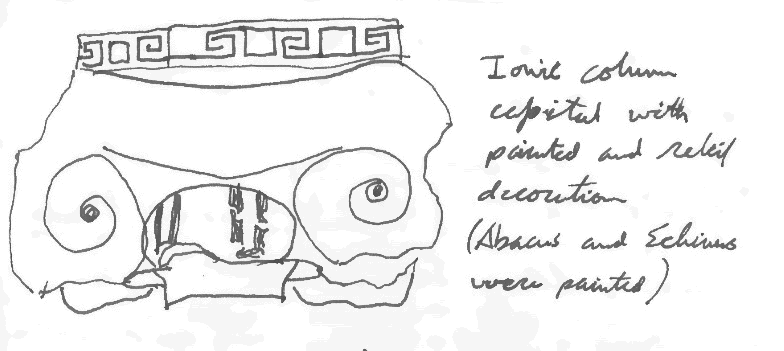 Ionic column
capital with
painted and relief
decoration
(Abacus and Echinus
were painted)